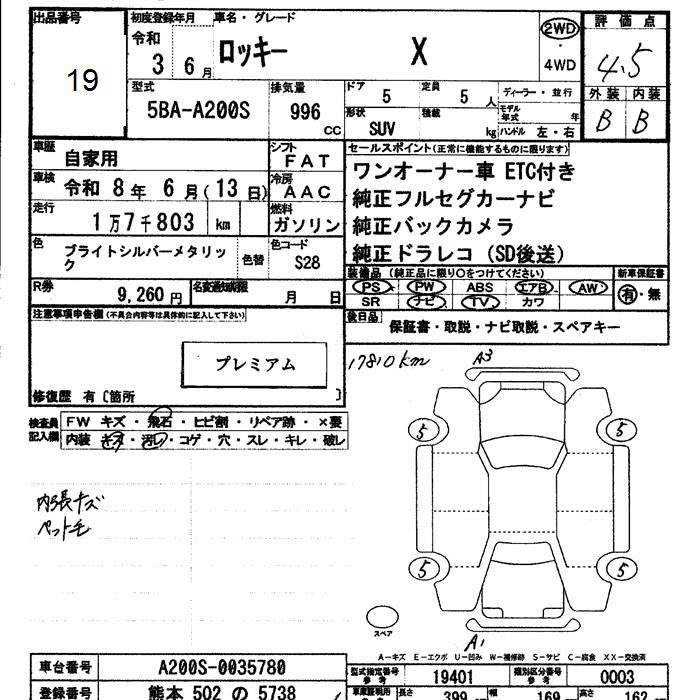 出品番号 初度登録年月 車名・グレード 評価点
19 令和 3 6月 ロッキー X 2WD ・ 4WD 4.5
外装 内装
B B
型式 排気量 ドア 定員 ディーラー・並行
5BA-A200S 996 cc 5 5人 モデル年式 年
形状 積載
SUV kg ハンドル 左・右
車歴 自家用 シフト FAT セールスポイント(正常に機能するものに限ります)
車検 令和 8年 6月(13日) 冷房 AAC ワンオーナー車 ETC付き
純正フルセグカーナビ
走行 1万7千803 km 燃料 ガソリン 純正バックカメラ
色 ブライトシルバーメタリック 色替 色コード S28 純正ドラレコ(SD後送)
R券 9,260円 名変通知期限 月 日 装備品(純正品に限り○をつけてください) 新車保証書
PS PW ABS エアB AW 有・無
SR ナビ TV カワ
注意事項申告欄(不具合内容等は具体的に記入して下さい) 後日品
保証書・取説・ナビ取説・スペアキー
プレミアム
修復歴 有〔箇所 〕
17810km A3
検査員記入欄 FW キズ・飛石・ヒビ割・リペア跡・×要
内装 キズ・汚レ・コゲ・穴・スレ・キレ・破レ
5 5
内張キズ
ペット毛
5 5
スペア
A1
A-キズ E-エクボ U-凹み W-補修跡 S-サビ C-腐食 XX-交換済
車台番号 A200S-0035780 型式指定番号 参考 19401 類別区分番号 参考 0003
登録番号 熊本 502 の 5738 長さ 399 幅 169 高さ 162